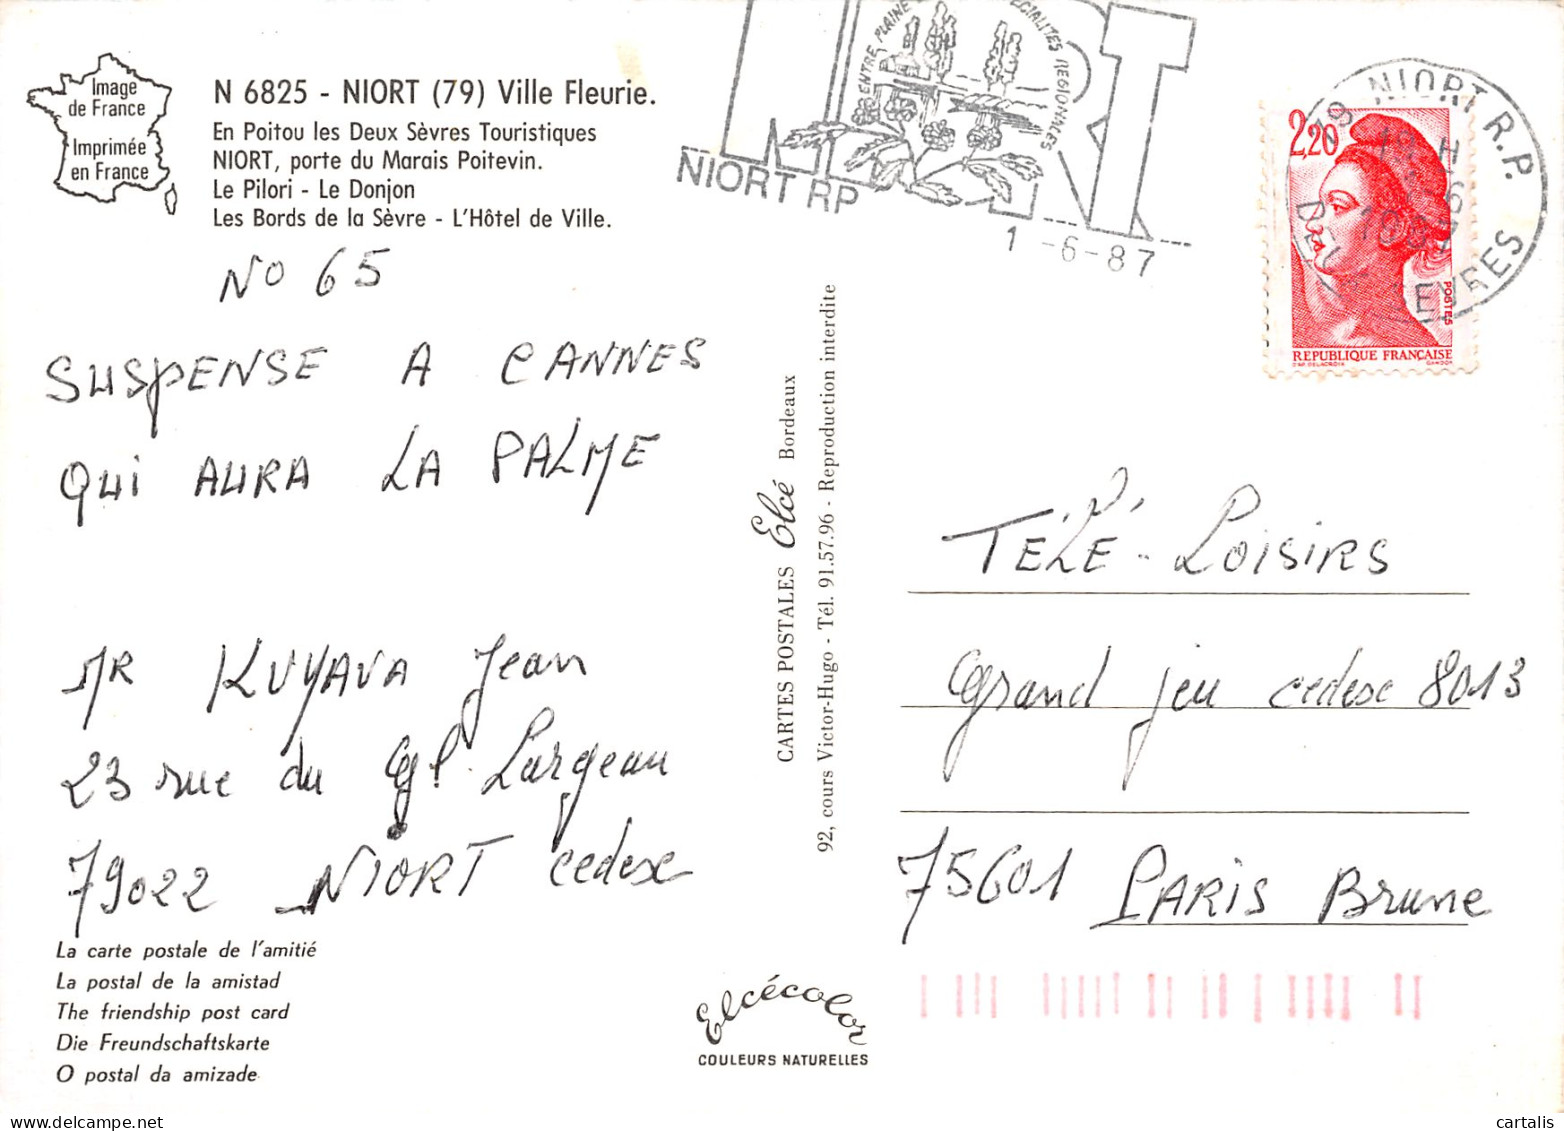 Image
de France
Imprimée
en France
N 6825 - NIORT (79) Ville Fleurie.
En Poitou les Deux Sèvres Touristiques
NIORT, porte du Marais Poitevin.
Le Pilori - Le Donjon
Les Bords de la Sèvre - L'Hôtel de Ville.
No 65
SUSPENSE A CANNES
QUI AURA LA PALME
MR KUYAVA Jean
23 rue du Gl. Largeau
79022 NIORT cedex
La carte postale de l'amitié
La postal de la amistad
The friendship post card
Die Freundschaftskarte
O postal da amizade
ENTRE PLAINE
SPECIALITES REGIONALES
NIORT RP
1-6-87
CARTES POSTALES Elcé Bordeaux
92, cours Victor-Hugo - Tél. 91.57.96 - Reproduction interdite
Elcécolor
COULEURS NATURELLES
2,20
POSTES
REPUBLIQUE FRANÇAISE
79 NIORT R.P.
DEUX SEVRES
TÉLÉ-LOISIRS
Grand jeu cedex 8013
75601 PARIS Brune
www.cartalis.com